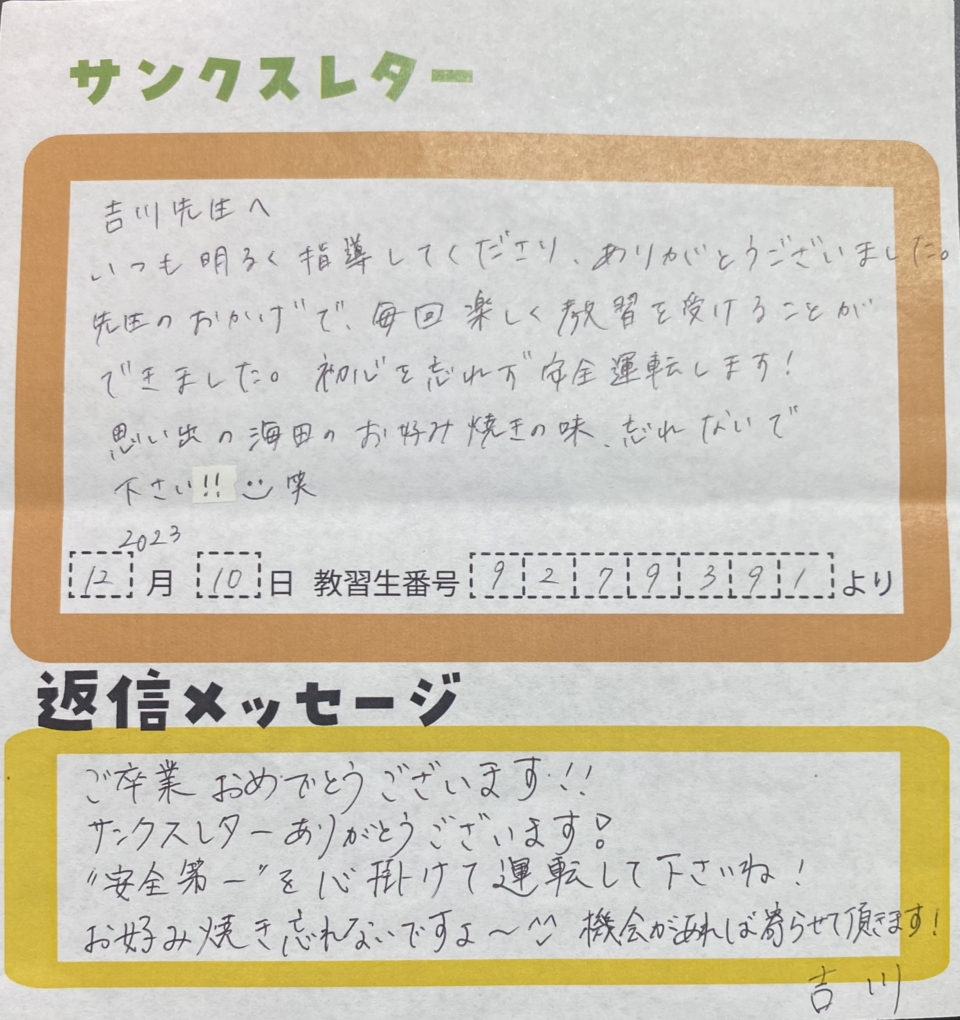 サンクスレター
吉川先生へ
いつも明るく指導してくださり、ありがとうございました。
先生のおかげで、毎回楽しく教習を受けることが
できました。初心を忘れず安全運転します!
思い出の海田のお好み焼きの味、忘れないで
下さい!! 笑
2023
12月10日 教習生番号 9279391より
返信メッセージ
ご卒業おめでとうございます!!
サンクスレターありがとうございます!
"安全第一"を心掛けて運転して下さいね!
お好み焼き忘れないですよ~^^ 機会があれば寄らせて頂きます!
吉川